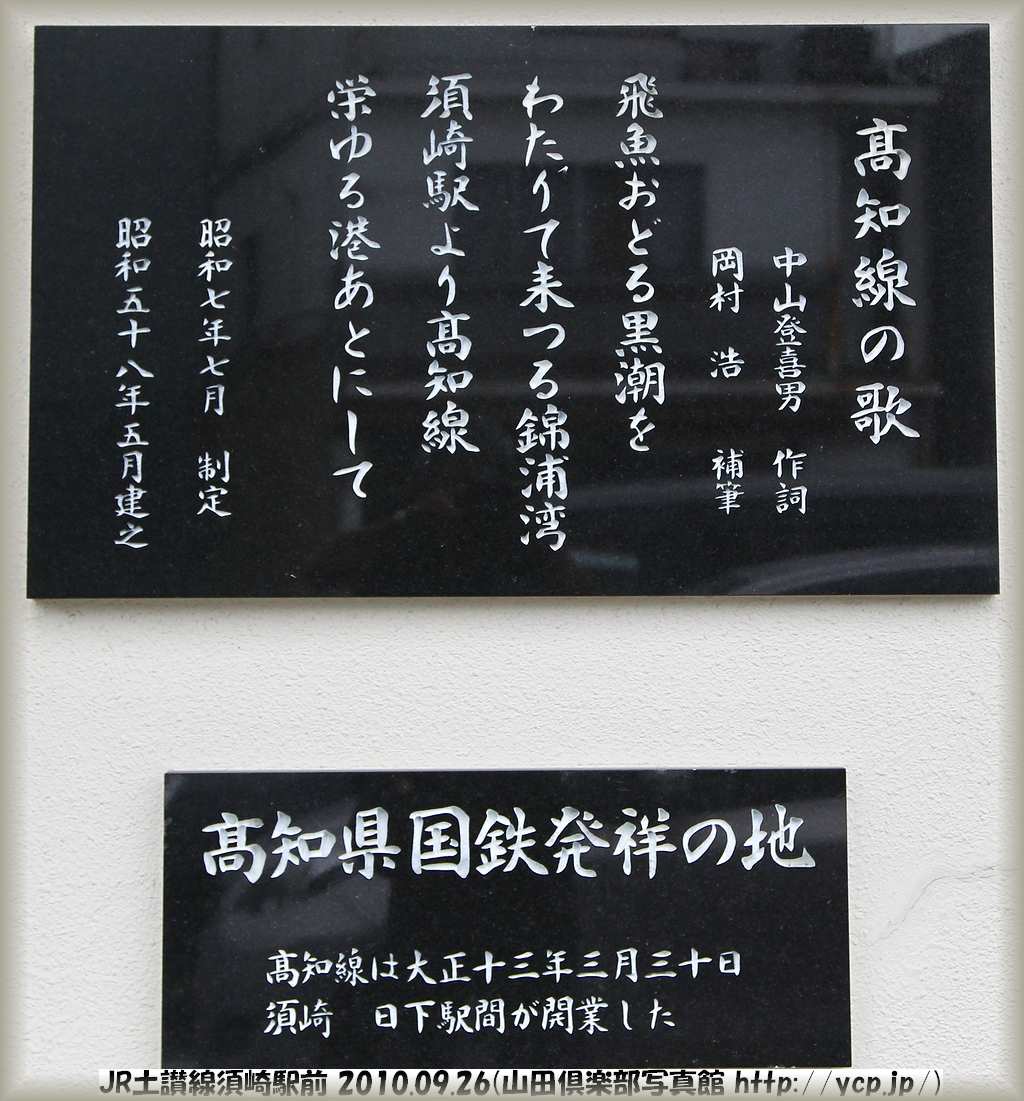 髙知線の歌
中山登喜男 作詞
岡村 浩 補筆
飛魚おどる黒潮を
わたりて来つる錦浦湾
須崎駅より髙知線
栄ゆる港あとにして
昭和七年七月 制定
昭和五十八年五月建之
髙知県国鉄発祥の地
髙知線は大正十三年三月三十日
須崎 日下駅間が開業した
JR土讃線須崎駅前 2010.09.26(山田倶楽部写真館 http://ycp.jp/)